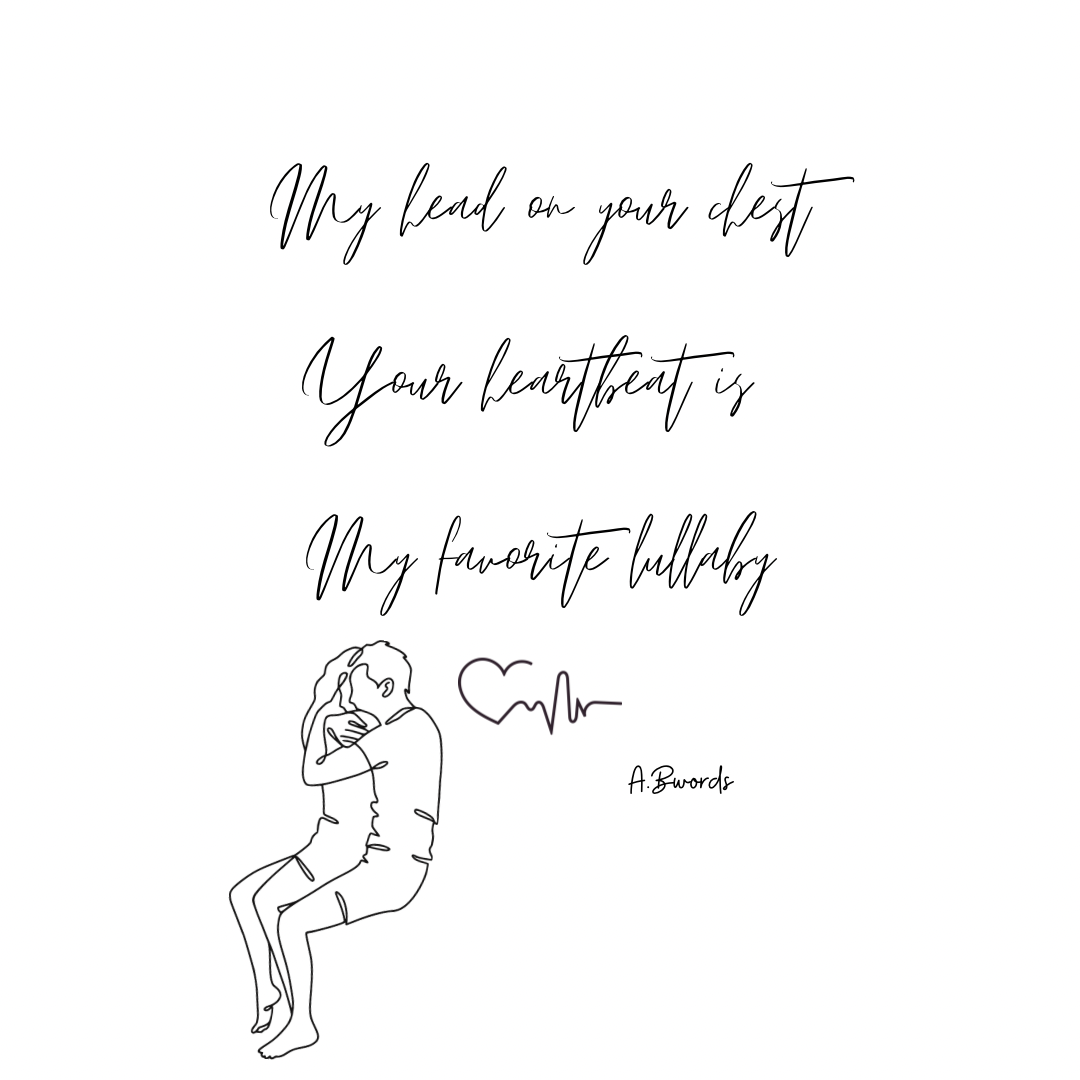 My head on your chest
Your heartbeat is
My favorite lullaby
A.Bwords